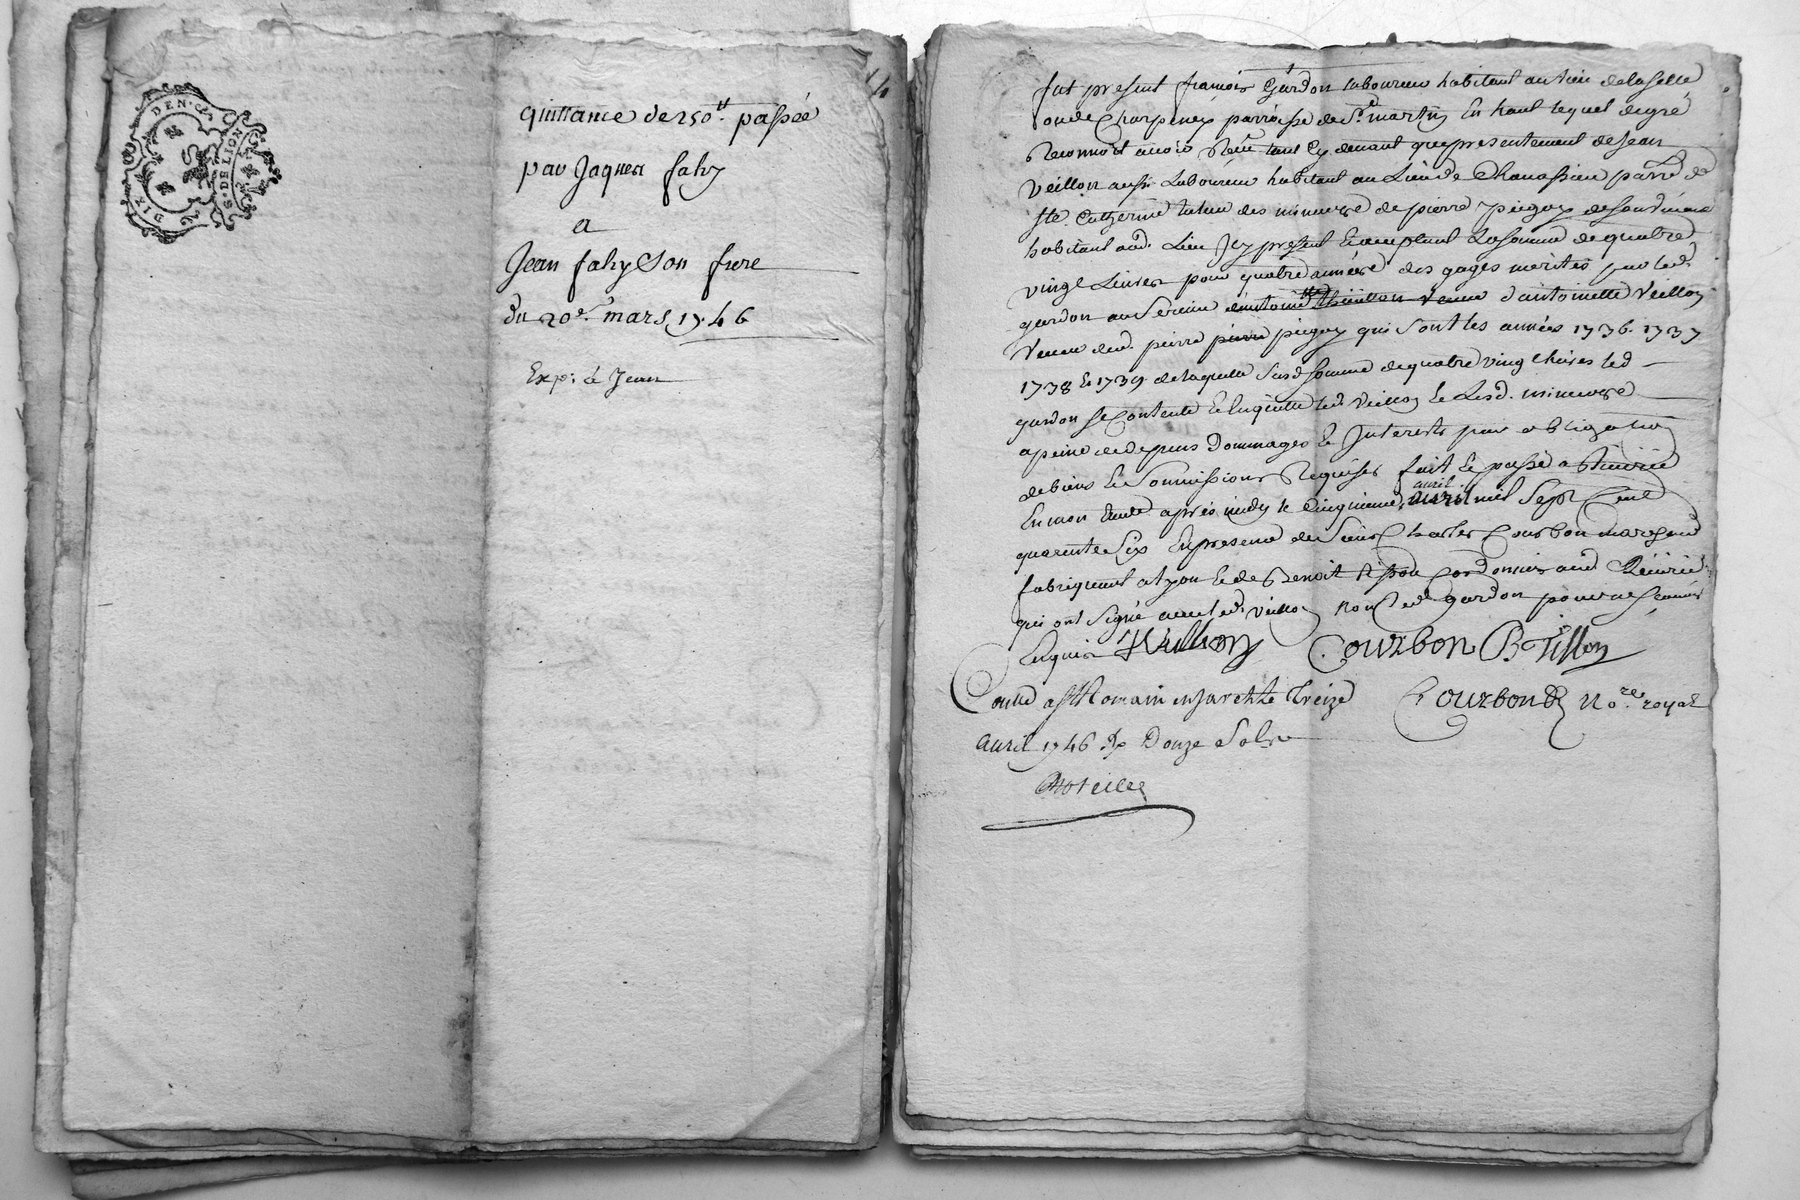 DIX DEN.
G. DE LION
quittance de 250tt. passée
par Jaques fahy
a
Jean fahy Son frere
du 20e. mars 1746
Exp: à Jean
fut present françois Gardon laboureur habitant au lieu de la selle
ou de Charpeney parroisse de St. martin En haut lequel de gré
Reconnoit avoir Reçu tant Cy devant que presentement de Jean
Veillon aussi Laboureur habitant au Lieu de Chavassieu parre. de
Ste. Catherine tuteur des mineurs de pierre
habitant aud. Lieu Icy present Et acceptant La somme de quatre
vingt Livres pour quatre années des gages merités par led.
gardon au Service d'antoinette Veillon
Veuve dud. pierre qui sont les années 1736. 1737
1738 Et 1739 de laquelle Susd. somme de quatre vingt Livres led.
gardon se Contente Et En quitte led. Veillon Et Lesd. mineurs
a peine de depens Dommages Et Interests par obligation
de biens Et Sommissions Requises fait Et passé a Riverie
En mon Etude après midy le Cinquieme
avril
mil Sept Cent
quarente Six En presence de Sieur Charles Courbon marchand
fabriquant a Lyon Et de Benoit Tisson Cordonnier aud. Riverie
qui ont Signé avec led. Veillon non led. gardon pour ne Scavoir
Enquis Veillon Courbon B Tisson
Conllé a St Romain en Jarest Le Treize
Courbon No.re royal
avril 1746 R. Douze Sols